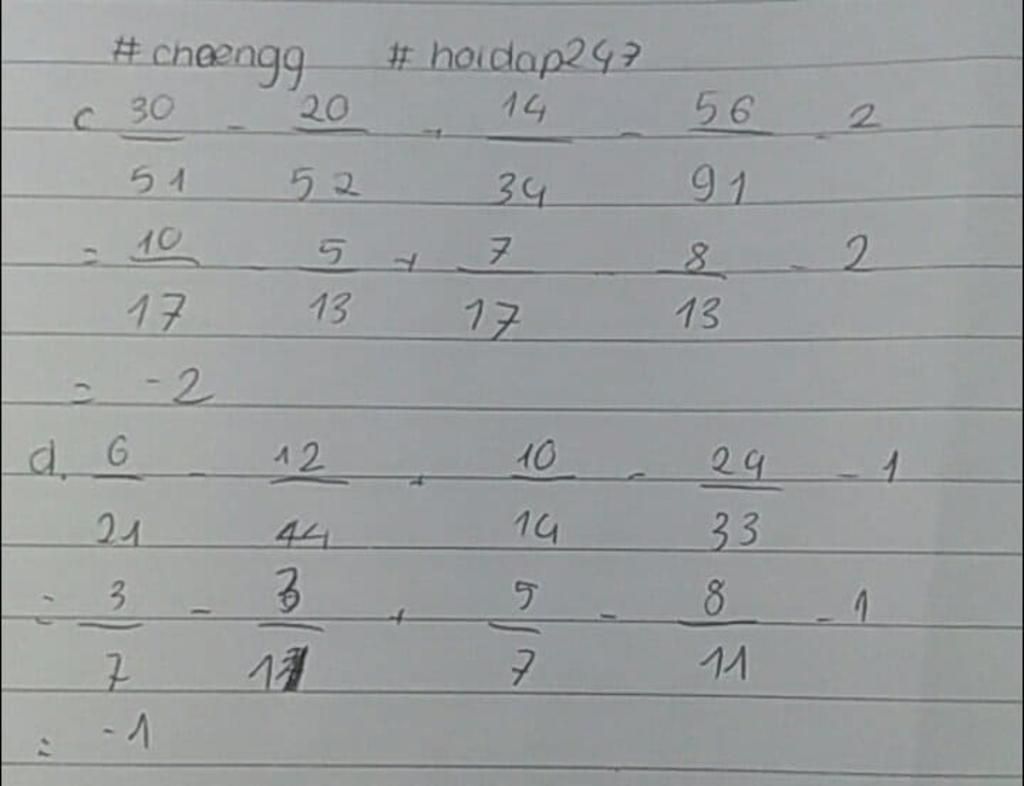 #chaengg #hoidap247
c 30/51 - 20/52 + 14/34 - 56/91 - 2
= 10/17 - 5/13 + 7/17 - 8/13 - 2
= -2
d. 6/21 - 12/44 + 10/14 - 24/33 - 1
= 3/7 - 3/11 + 5/7 - 8/11 - 1
= -1